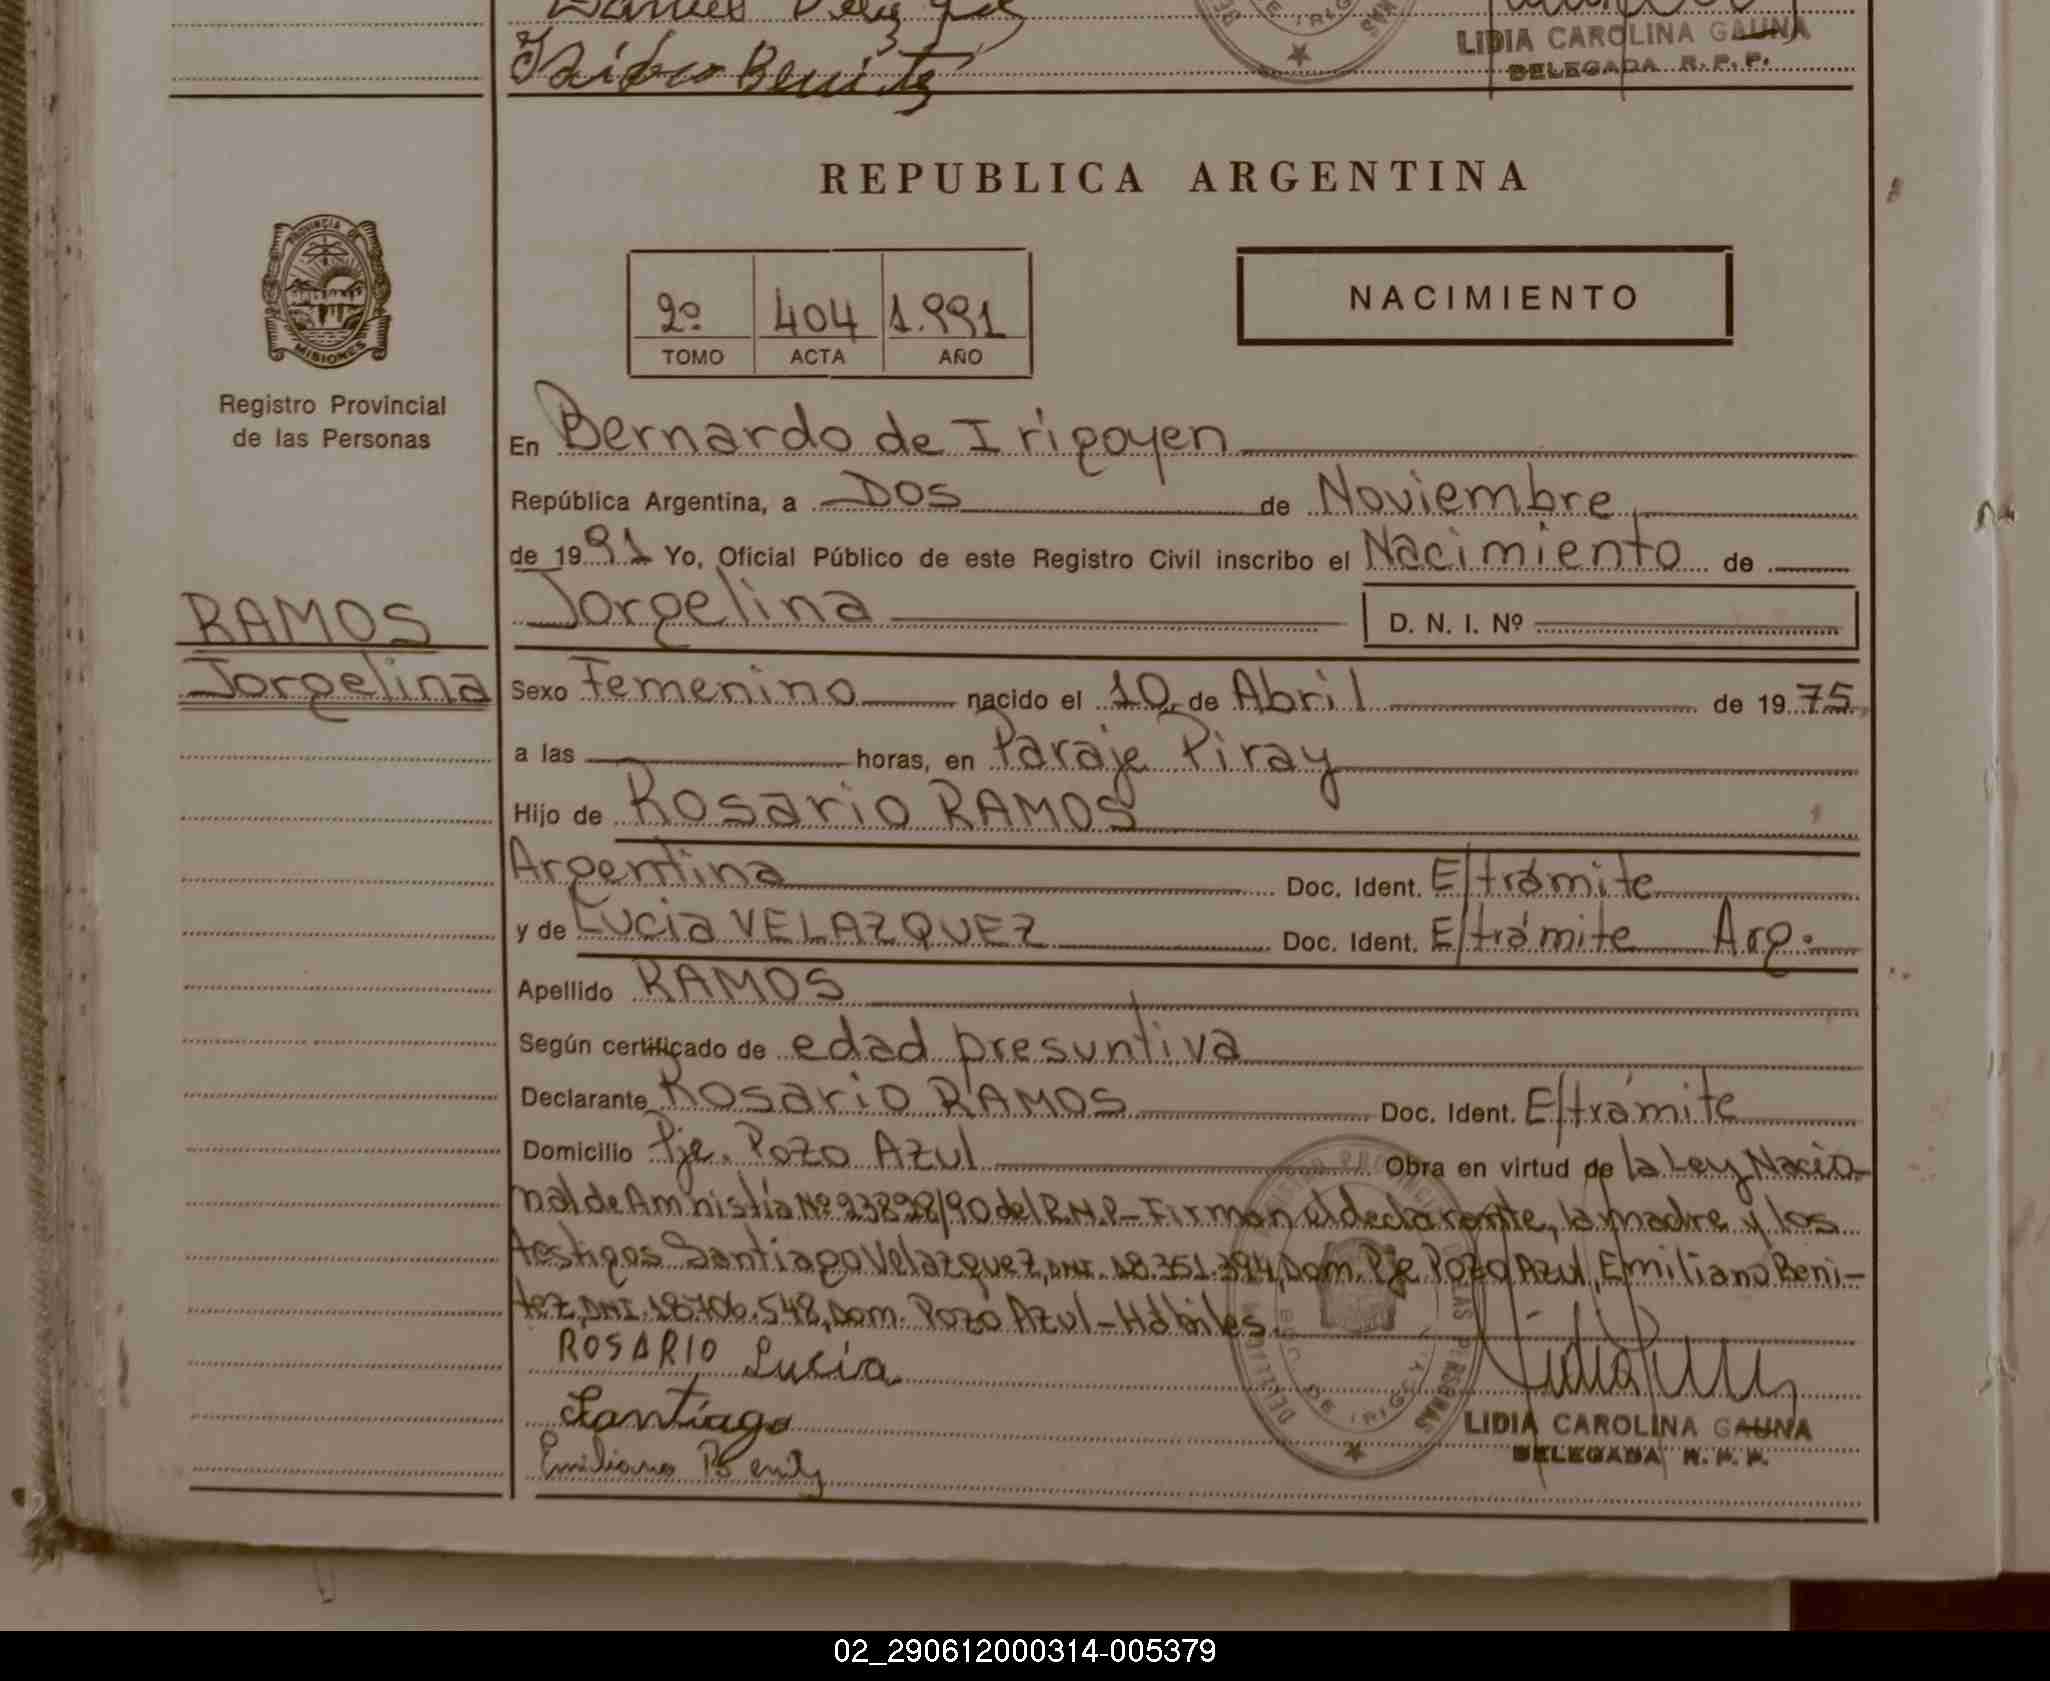 Isidro Benitez
LIDIA CAROLINA GAUNA
DELEGADA R. P. P.
REPUBLICA ARGENTINA
PROVINCIA DE
MISIONES
Registro Provincial
de las Personas
2º 404 1.991
TOMO ACTA AÑO
NACIMIENTO
En Bernardo de Irigoyen
República Argentina, a Dos de Noviembre
de 1991 Yo, Oficial Público de este Registro Civil inscribo el Nacimiento de
RAMOS
Jorgelina
Jorgelina D. N. I. Nº
Sexo Femenino nacido el 10 de Abril de 1975
a las horas, en Paraje Piray
Hijo de Rosario RAMOS
Argentina Doc. Ident. E/trámite
y de Lucia VELAZQUEZ Doc. Ident. E/trámite Arg.
Apellido RAMOS
Según certificado de edad presuntiva
Declarante Rosario RAMOS Doc. Ident. E/trámite
Domicilio Pje. Pozo Azul Obra en virtud de la Ley Nacio-
nal de Amnistía Nº 23828/90 del R.N.P- Firman el declarante, la madre y los
testigos Santiago Velazquez, DNI. 18.351.394, Dom. Pje Pozo Azul, Emiliano Beni-
tez, DNI 18706.548, Dom. Pozo Azul-Hábiles.
ROSARIO Lucia
Santiago
Emiliano Benitez
LIDIA CAROLINA GAUNA
DELEGADA R. P. P.
02_290612000314-005379